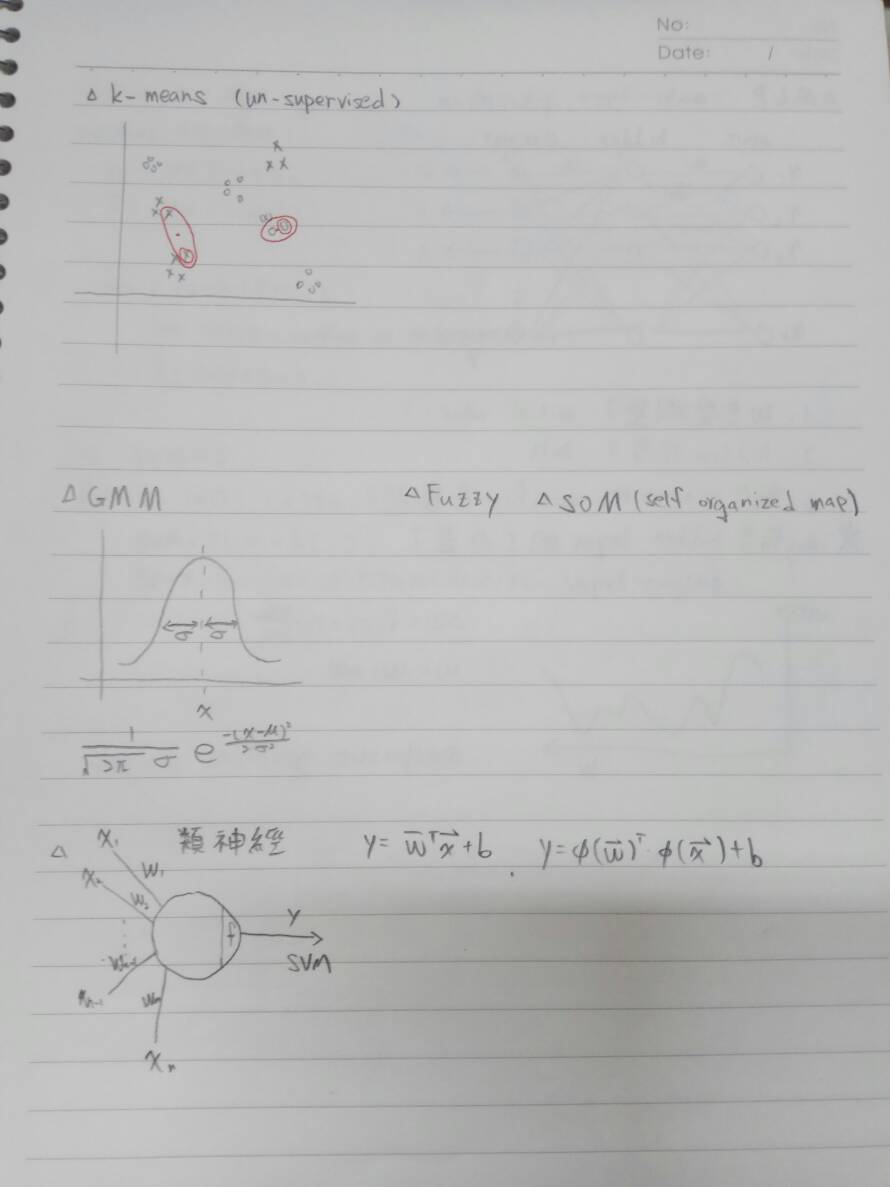 No:
Date: /
△ k-means (un-supervised)
△ GMM △ Fuzzy △ SOM (self organized map)
σ σ
x
1/(√2π σ) e^(-(x-μ)²/2σ²)
△ 類神經 y = w̄ᵀx⃗ + b y = φ(w⃗)ᵀ φ(x⃗) + b
x₁
w₁
x₂
w₂
f
y
SVM
wₙ₋₁
xₙ₋₁
wₙ
xₙ